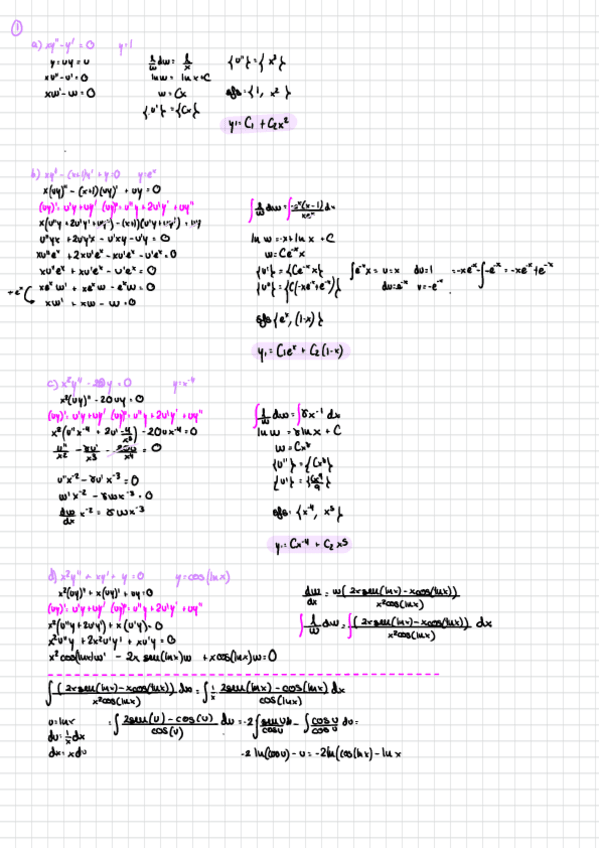 ①
a) xy'' - y' = 0   y = 1
y = uy = u
xu'' - u' = 0
xw' - w = 0
∫ 1/w dw = 1/x
ln w = ln x + C
w = Cx
{u'} = {Cx}
{u''} = { x² }
sfs = {1, x² }
y = C₁ + C₂x²
b) xy'' - (x+1)y' + y = 0   y = eˣ
x(uy)'' - (x+1)(uy)' + uy = 0
(uy)' = u'y + uy'   (uy)'' = u''y + 2u'y' + uy''
u''yx + 2uy'x - u'xy - u'y = 0
xu''eˣ + 2xu'eˣ - xu'eˣ - u'eˣ = 0
xu''eˣ + xu'eˣ - u'eˣ = 0
÷eˣ   xeˣw' + xeˣw - eˣw = 0
xw' + xw - w = 0
ln w = -x + ln x + C
w = Ce⁻ˣx
{u'} = {Ce⁻ˣx}
{u''} = {C(-xe⁻ˣ + e⁻ˣ)}
∫e⁻ˣx = u = x   du = 1   = -xe⁻ˣ - ∫-e⁻ˣ = -xe⁻ˣ + e⁻ˣ
du = e⁻ˣ   v = -e⁻ˣ
sfs {eˣ, (1-x)}
y₁ = C₁eˣ + C₂(1-x)
c) x²y'' - 20y = 0   y = x⁻⁴
x²(uy)'' - 20uy = 0
(uy)' = u'y + uy'   (uy)'' = u''y + 2u'y' + uy''
u''x⁻² - 8u'x⁻³ = 0
w'x⁻² - 8wx⁻³ = 0
dw/dx x⁻² = 8wx⁻³
∫ 1/w dw = ∫ 8x⁻¹ dx
ln w = 8 ln x + C
w = Cx⁸
{u''} = {Cx⁸}
{u'} = {Cx⁹/9}
sfs: {x⁻⁴, x⁵}
y = Cx⁻⁴ + C₂x⁵
d) x²y'' + xy' + y = 0   y = cos(ln x)
x²(uy)'' + x(uy)' + uy = 0
(uy)' = u'y + uy'   (uy)'' = u''y + 2u'y' + uy''
x²(u''y + 2u'y') + x(u'y) = 0
x²u''y + 2x²u'y' + xu'y = 0
x²cos(ln x)w' - 2x sen(ln x)w + xcos(ln x)w = 0
dw/dx = w(2x sen(ln x) - xcos(ln x))/x²cos(ln x)
∫ 1/w dw = ∫ (2x sen(ln x) - xcos(ln x))/x²cos(ln x) dx
∫ (2x sen(ln x) - xcos(ln x))/x²cos(ln x) dx = ∫ 1/x 2sen(ln x) - cos(ln x)/cos(ln x) dx
u = ln x
du = 1/x dx
dx = x du
= ∫ 2sen(u) - cos(u)/cos(u) du = -2∫ sen u/cos u - ∫ cos u/cos u du =
-2 ln(cos u) - u = -2 ln(cos(ln x) - ln x